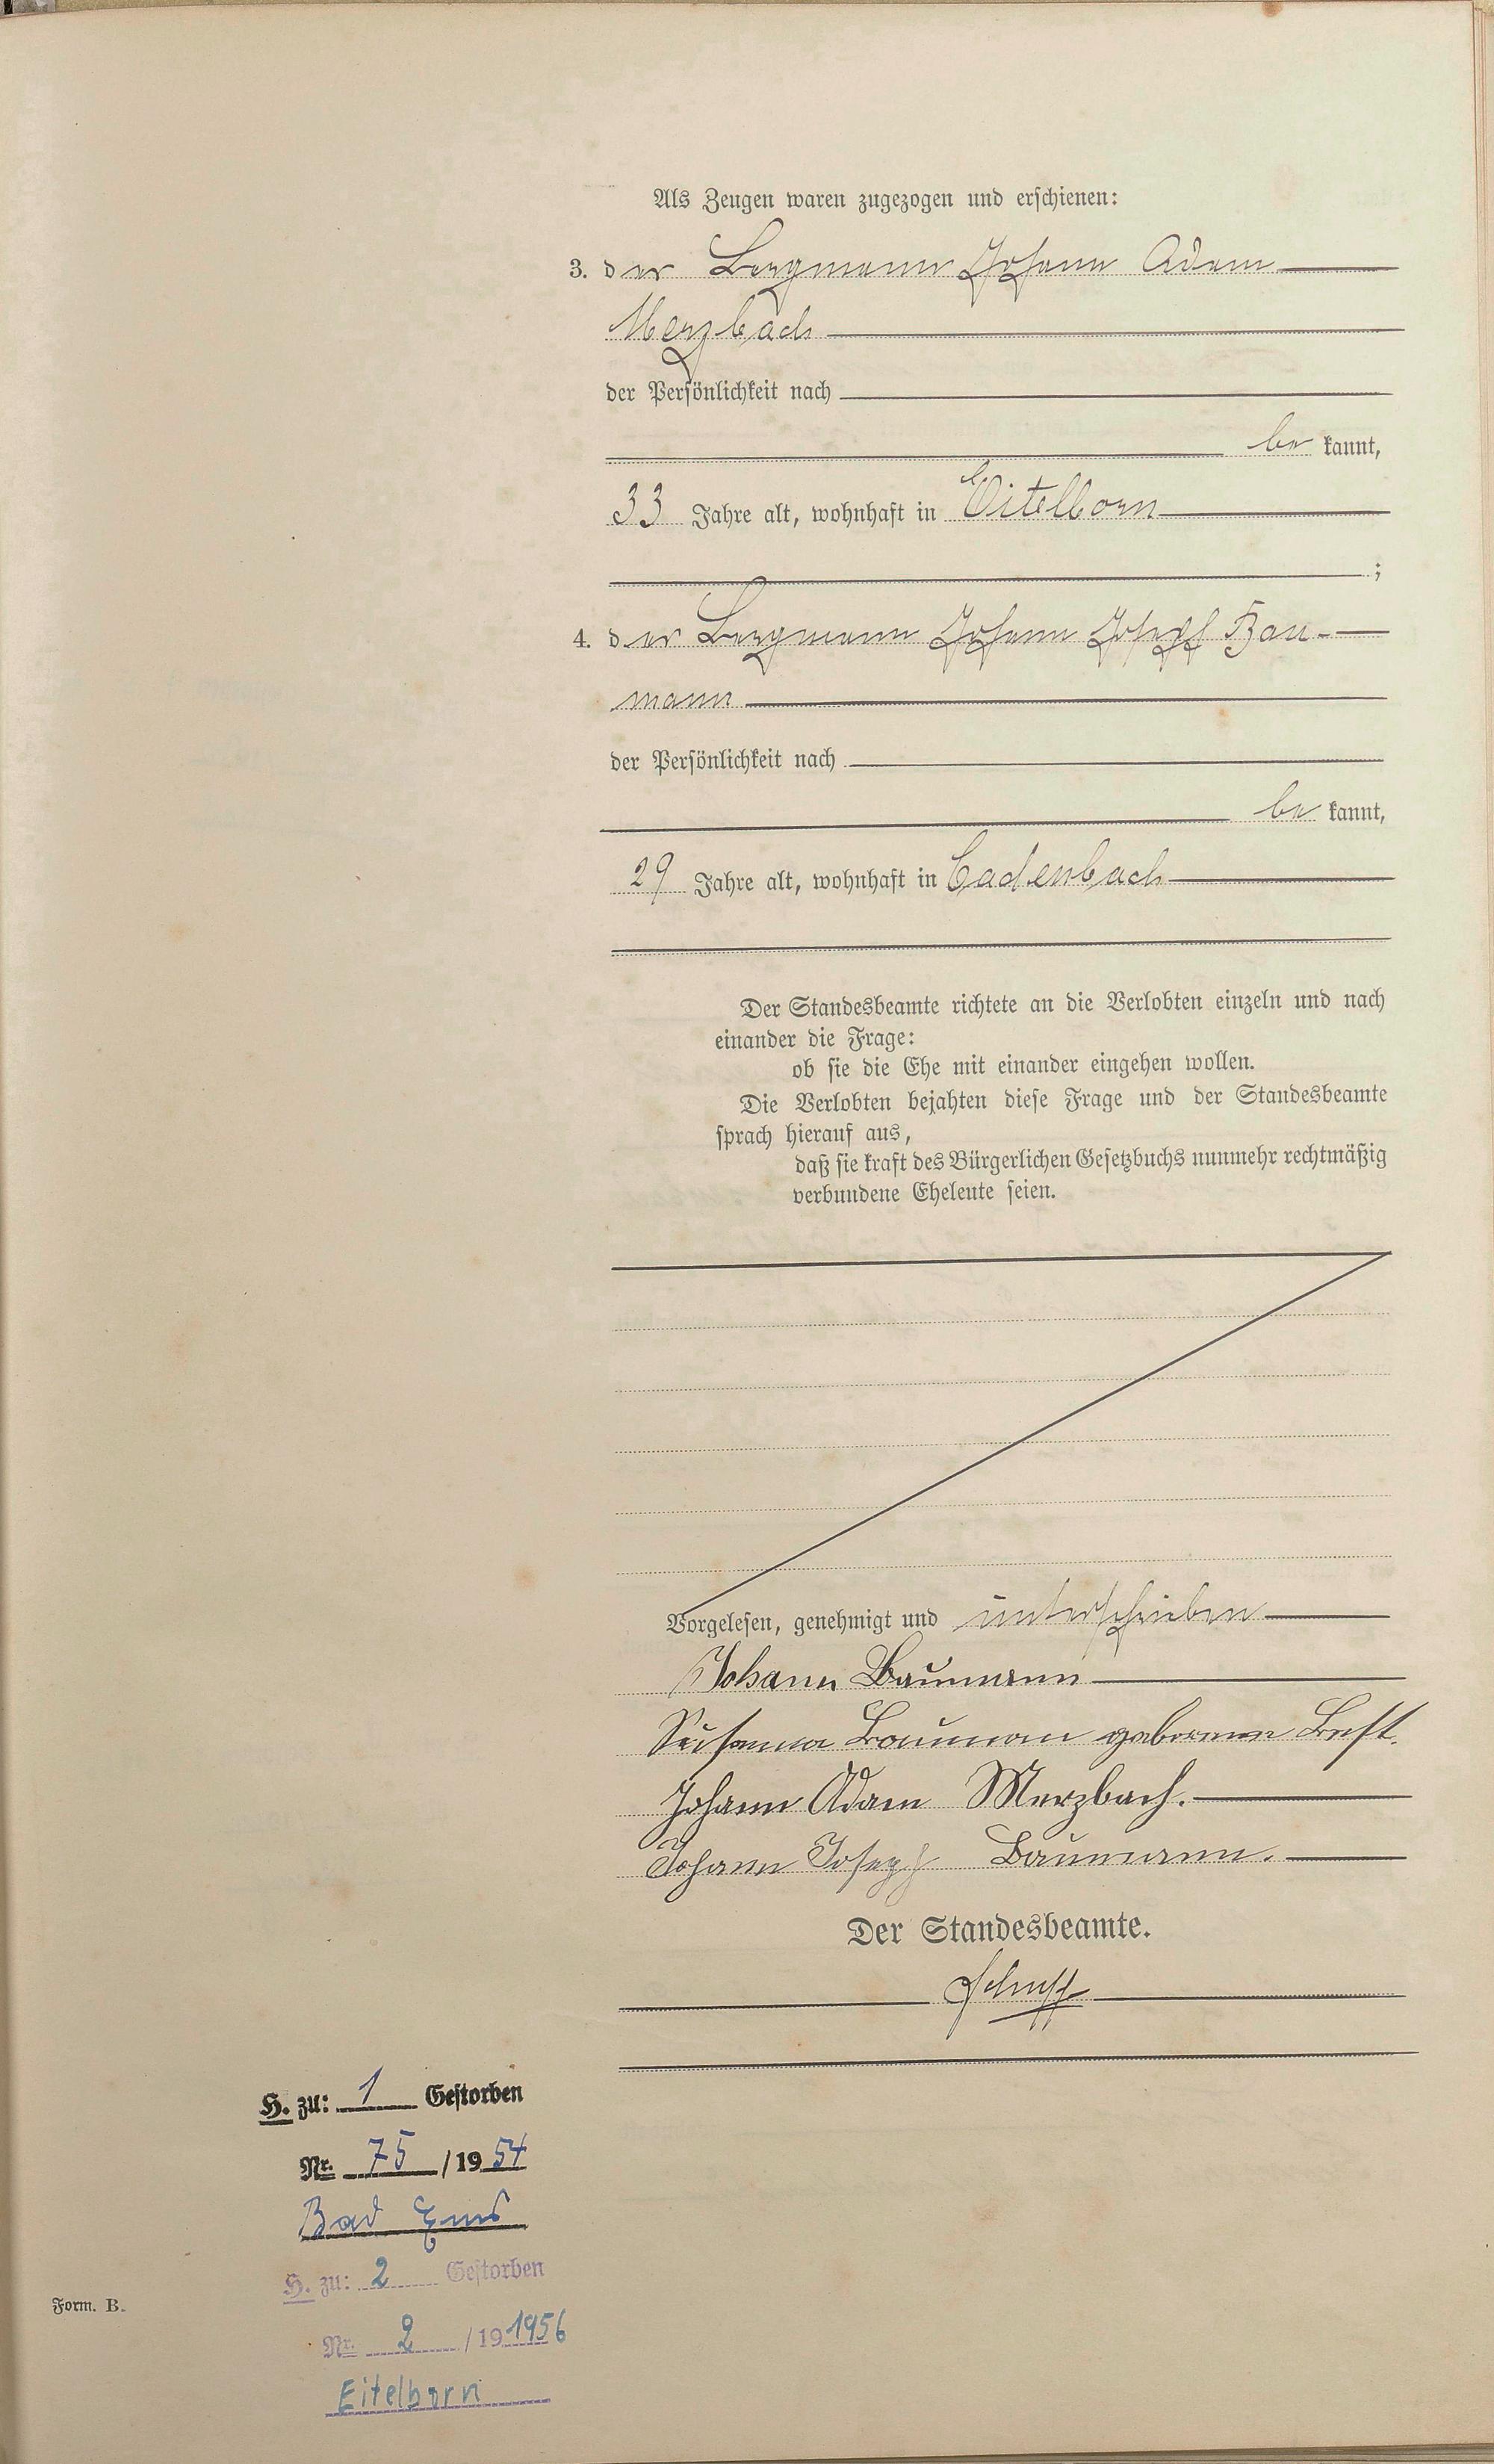 Als Zeugen waren zugezogen und erschienen:
3. der Bergmann Johann Adam
Merzbach
der Persönlichkeit nach
be kannt,
33 Jahre alt, wohnhaft in Eitelborn
;
4. der Bergmann Johann Josef Bau-
mann
der Persönlichkeit nach
be kannt,
29 Jahre alt, wohnhaft in Cadenbach
Der Standesbeamte richtete an die Verlobten einzeln und nach
einander die Frage:
ob sie die Ehe mit einander eingehen wollen.
Die Verlobten bejahten diese Frage und der Standesbeamte
sprach hierauf aus,
daß sie kraft des Bürgerlichen Gesetzbuchs nunmehr rechtmäßig
verbundene Eheleute seien.
Vorgelesen, genehmigt und unterschrieben
Johann Baumann
Susanna Bauman geborene
Johann Adam Merzbach.
Johann Joseph Baumann.
Der Standesbeamte.
H. zu: 1 Gestorben
Nr. 75 /1954
Bad Ems
H. zu: 2 Gestorben
Nr. 2 /19 1956
Eitelborn
Form. B.